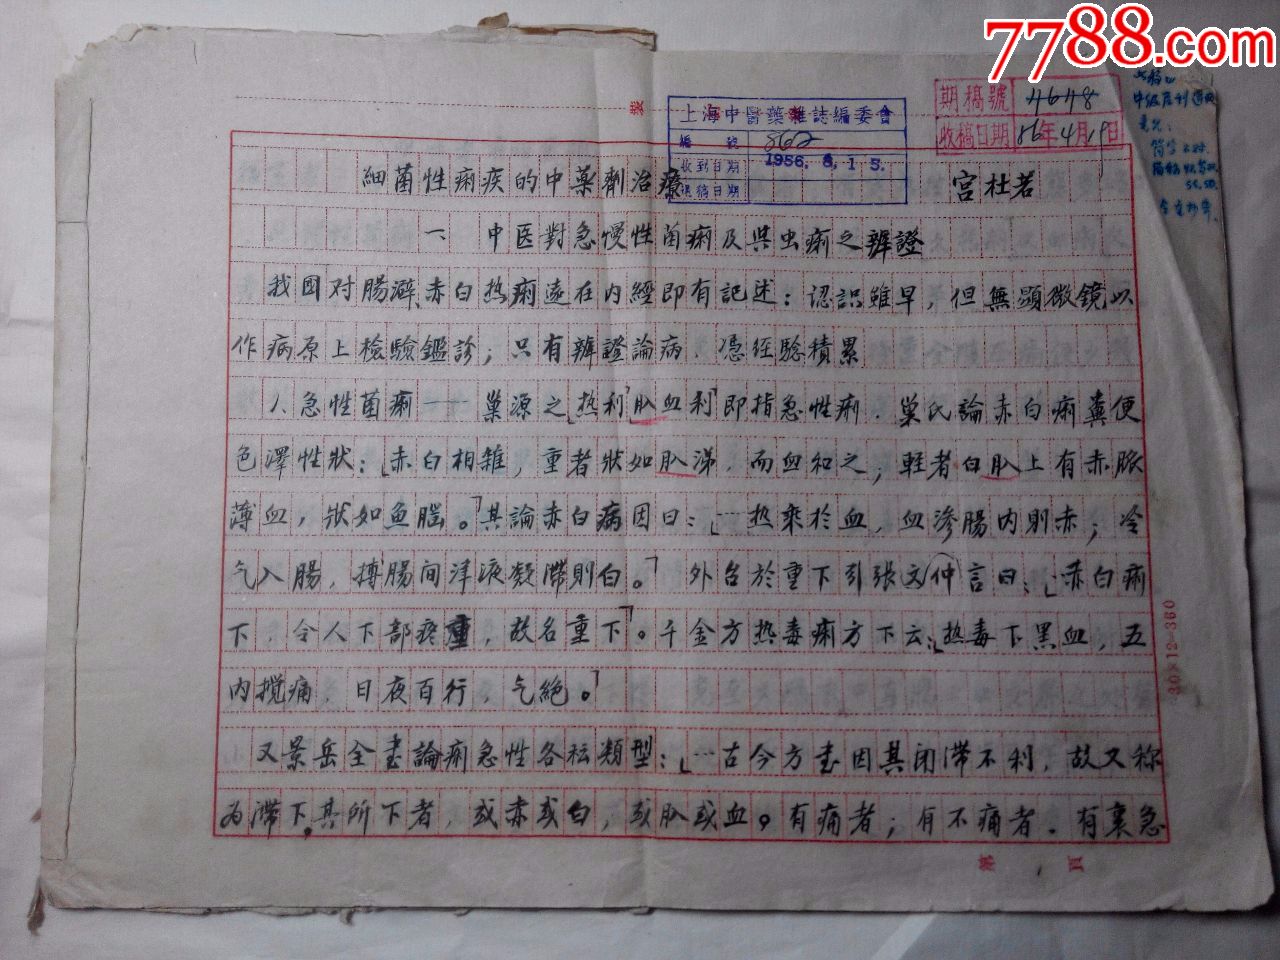 7788.com
期稿號 4648
收稿日期 56年4月19日
上海中醫藥雜誌編委會
編號 862
收到日期 1956.8.15.
退稿日期
細菌性痢疾的中藥劑治療 宮杜若
一 中医對急慢性菌痢及與虫痢之辨證
我國对腸澼、赤白热痢遠在内經即有記述：認識雖早，但無顕微鏡以
作病原上檢驗鑑診；只有辨證論病，憑経驗積累
1 急性菌痢——巢源之「热利」「肠血利」即指急性痢．巢氏論赤白痢糞便
色澤性狀：「赤白相雜，重者狀如肠涕，而血和之；軽者白肠上有赤脈
薄血，狀如鱼腦。」其論赤白病因曰：「—热乘於血，血滲腸内則赤；冷
气入腸，搏腸间津液凝滯則白。」外台於重下引張文仲言曰：「赤白痢
下，令人下部疼重，故名重下」。千金方热毒痢方下云：「热毒下黑血，五
内搅痛，日夜百行，气絶。」
又景岳全書論痢急性各种類型：「—古今方書因其闭滯不利，故又称
为滯下。其所下者，或赤或白，或肠或血。有痛者；有不痛者．有裏急
30×12=360
第 1 頁